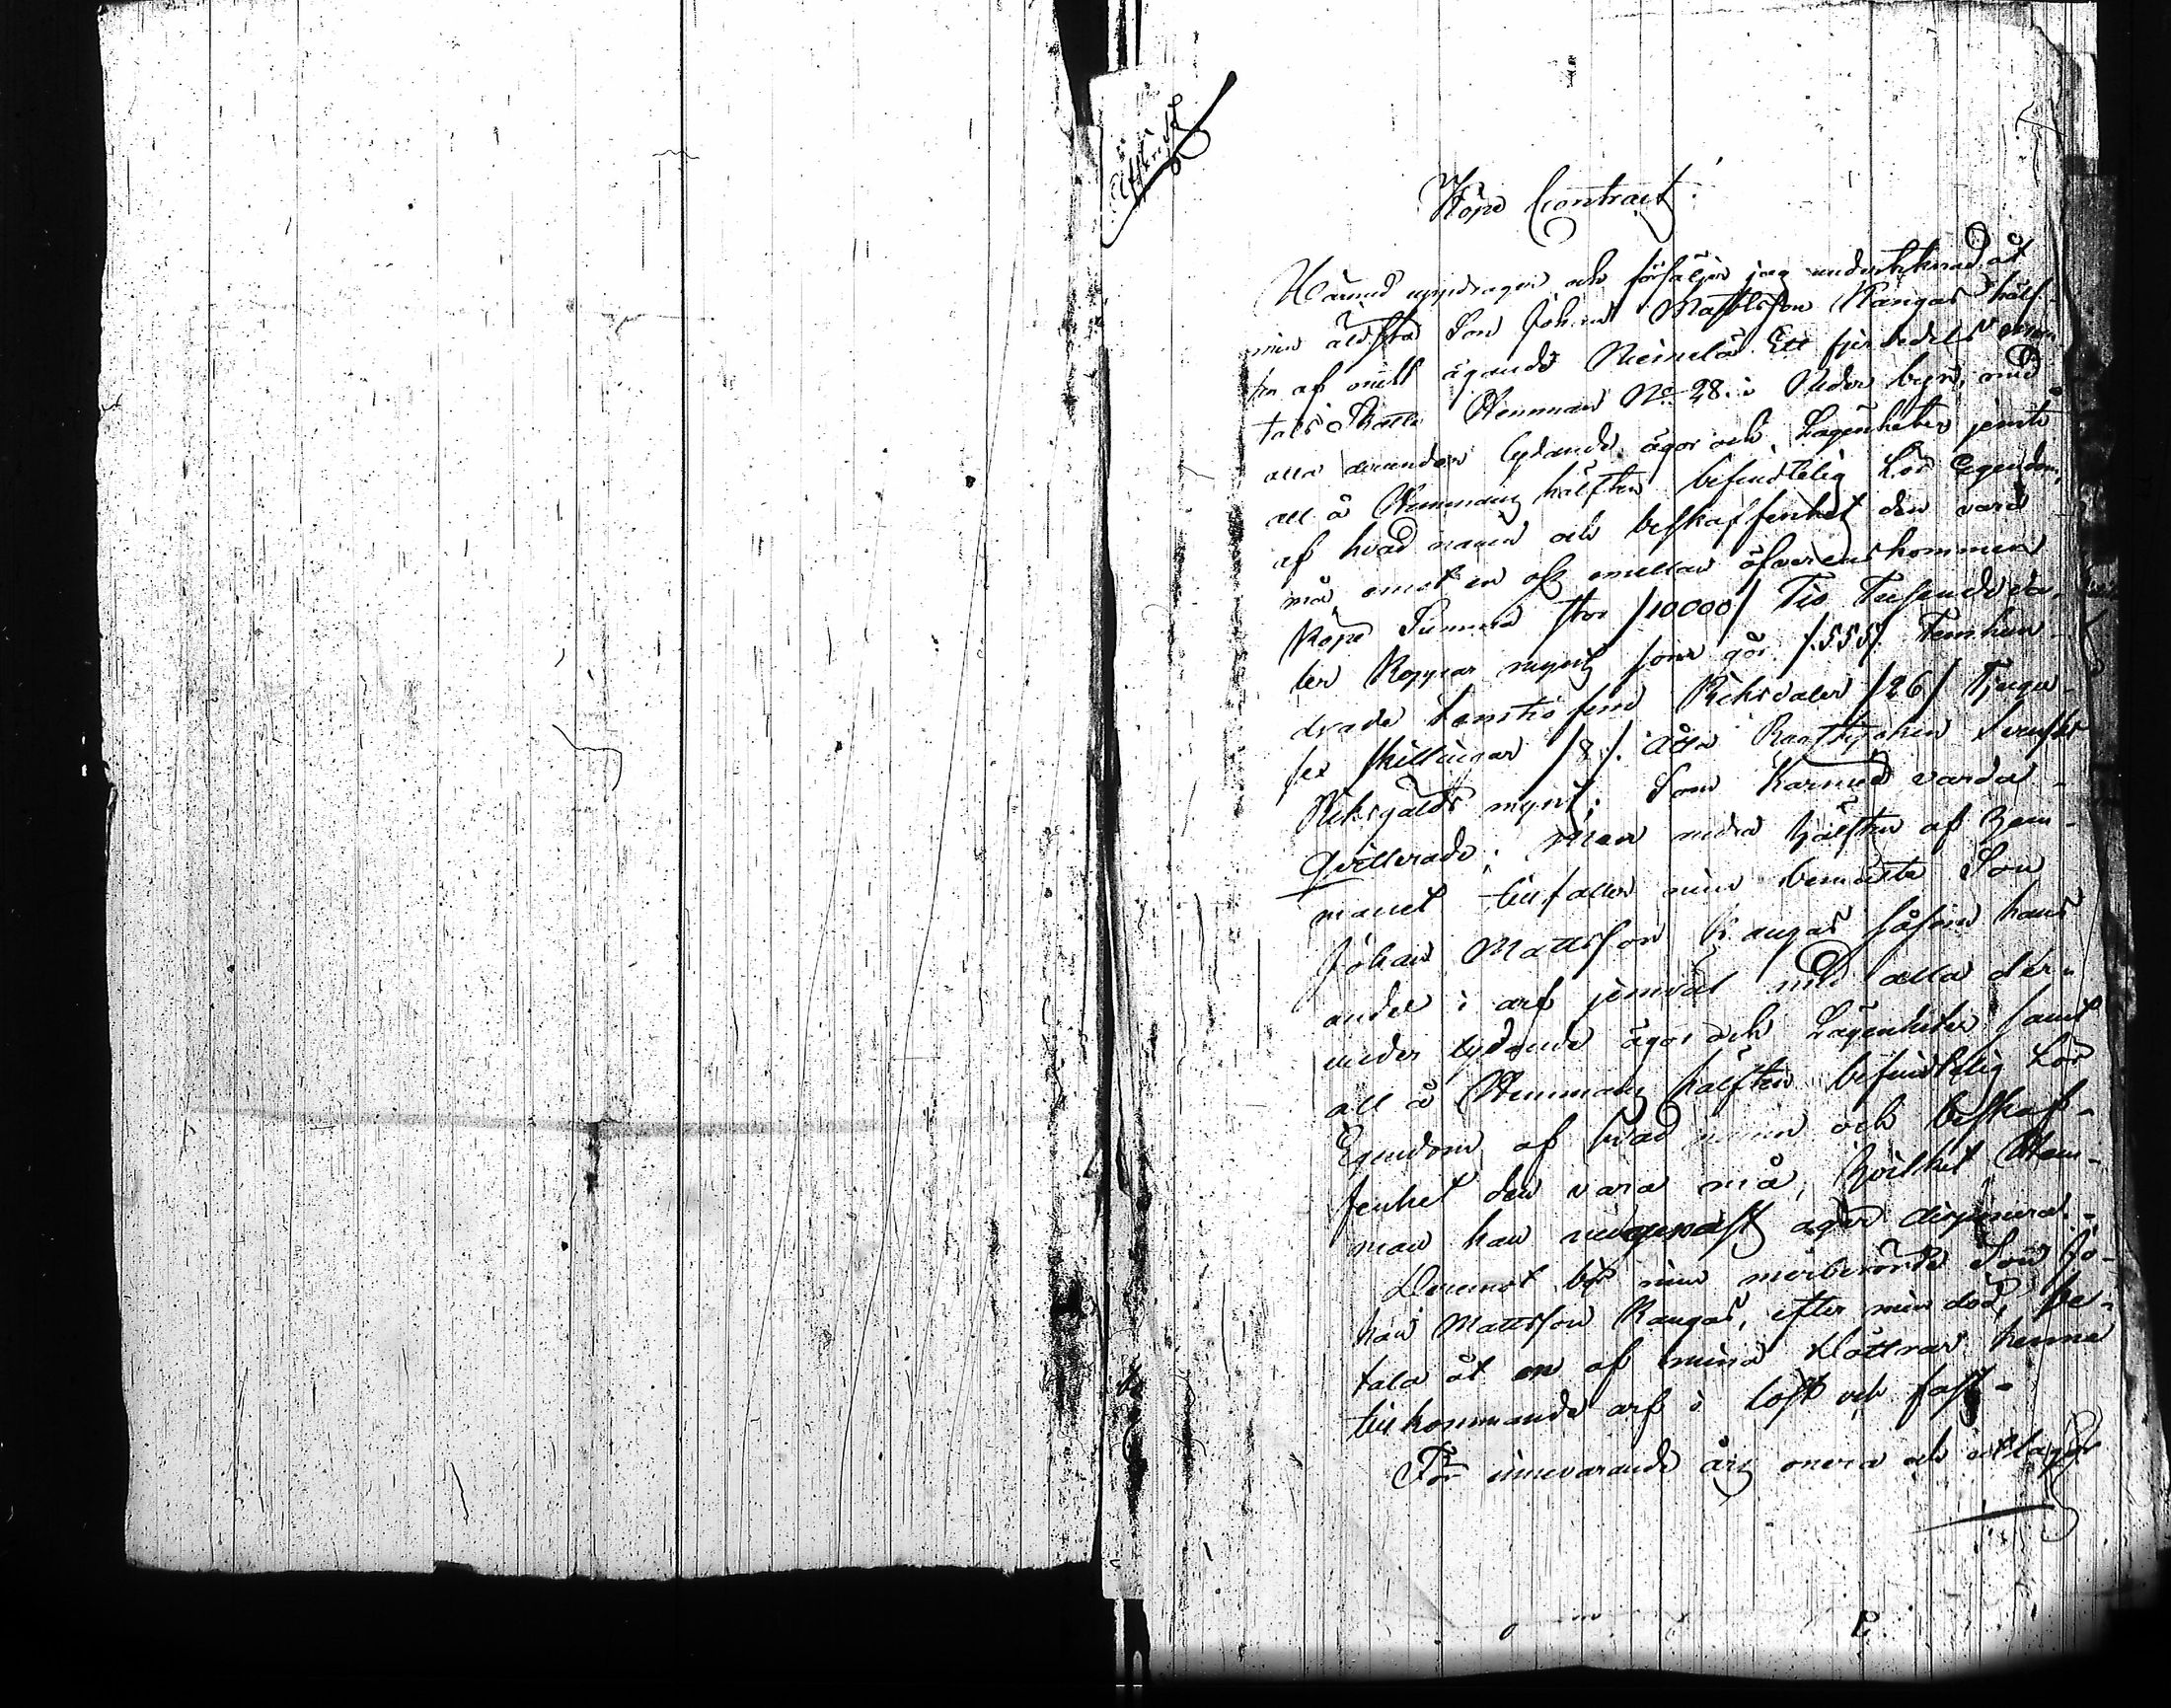 Afskrift
Köpe Contract
Härmed updrager och försäljer jag undertecknad åt
min äldsta Son Johan Mattsson Kangas hälf-
ten af mitt ägande Ett fjerdedels man-
tals Skatte Hemman No 28. i Neder byn, med
alla derunder lydande ägor och Lägenheter jemte
all å Hemmans hälften befindtelig Lös Egendom,
af hvad namn och beskaffenhet den vara
må emot en oss emellan öfverenskommen
Köpe Summa stor /10000/ Tio Tusende da-
ler Koppar mynt som gör /:555/. Femhun-
drade femtio fem Riksdaler /26/ Tjugu-
sex skillingar /8/. åtta Runstycken Svenskt
Riksgälds mynt; Som härmed varda
Qvitterade; Men andra hälften af Hem-
manet tillfaller min bemälte Son
Johan Mattsson Kangas såsom hans
andel i arf jemväl med alla der-
under lydande ägor och Lägenheter samt
all å Hemmans hälften befindtelig Lös
Egendom af hvad namn och beskaf-
fenhet den vara må, hvilket Hem-
man han nu genast äger disponera.-
Deremot bör min merberörde Son Jo-
han Mattsson Kangas, efter min död, be-
tala åt en af mina Döttrar henne
tillkommande arf i löst och fast-
För innevarande års onera och utlagor